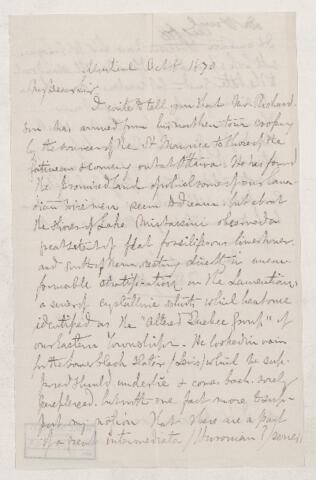 Montreal Oct 8 1870
My dear Sir
I write to tell you that Mr. Richard-
son has arrived from his northern tour
by the sources of the St Maurice to those of the
Gatineau & coming out at Ottawa. He has found
the Promised Land of which some of our Cana-
dian wise men seem to dream: but about
the shores of Lake Mistassini observed a
great extent of flat fossiliferous limestones
and north of them, resting directly in uncon-
formable stratification on the Laurentian,
a series of crystalline schists which he at once
identified as the "Altered Quebec Group" of
our Eastern Townships. He looked in vain
for the lower black slates which he sup-
posed should underlie & come back sorely
perplexed, but with one fact more to sup-
port my notion that these are a part
of a great intermediate (Huronian?) series